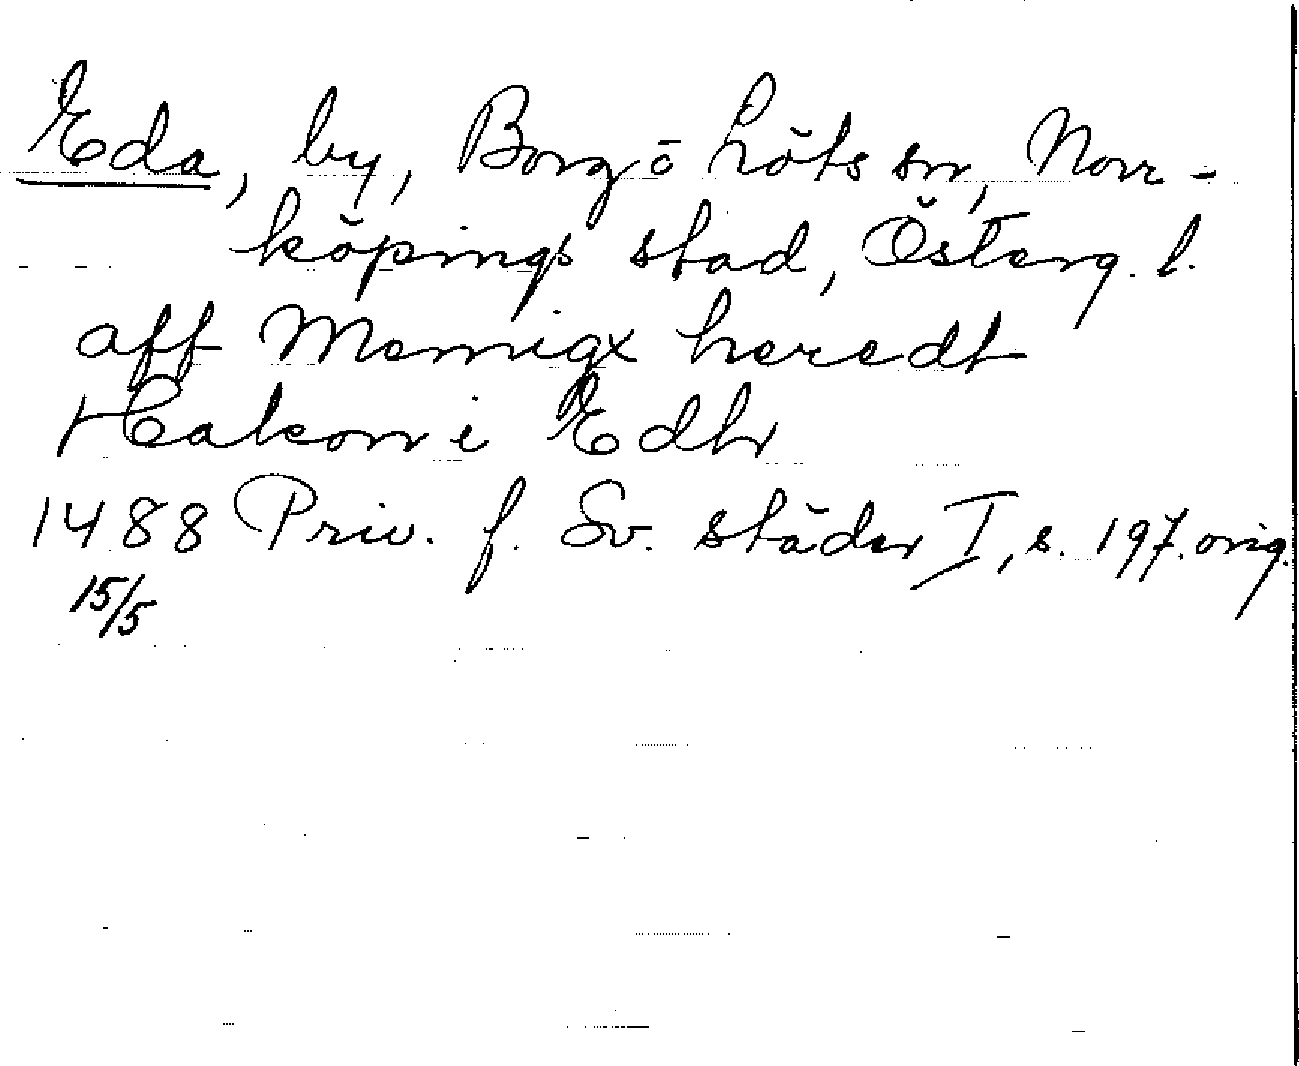 Eda, by, Borg o Löts sn, Norr-
köpings stad, Österg. l.
aff Memigx heredt
Hakon i Edhr
1488 Priv. f. Sv. städer I, s. 197. orig.
15/5